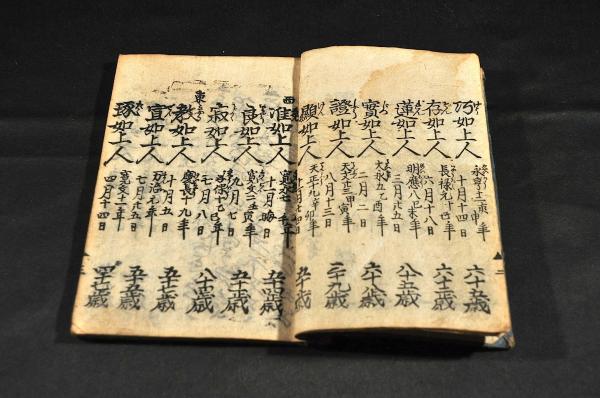 巧如上人
永享十二庚申年
十月十四日
六十五歳
存如上人
長禄元年
六月十八日
六十二歳
蓮如上人
明應八己未年
三月廿五日
八十五歳
實如上人
大永五乙酉年
二月二日
六十八歳
證如上人
天文廿三甲寅年
八月十三日
三十九歳
顯如上人
天正十九辛卯年
五十歳
西
准如上人
寛永七
十一月晦日
五十四歳
良如上人
寛文二壬寅年
九月七日
五十一歳
寂如上人
享保十乙巳年
七月八日
八十歳
東
教如上人
慶長十九年
十月五日
五十七歳
宣如上人
万治元年
七月廿五日
五十五歳
琢如上人
寛文十一年
四月十四日
四十七歳